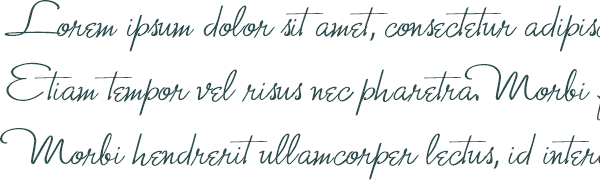 Lorem ipsum dolor sit amet, consectetur adipisc
Etiam tempor vel risus nec pharetra. Morbi
Morbi hendrerit ullamcorper lectus, id inter